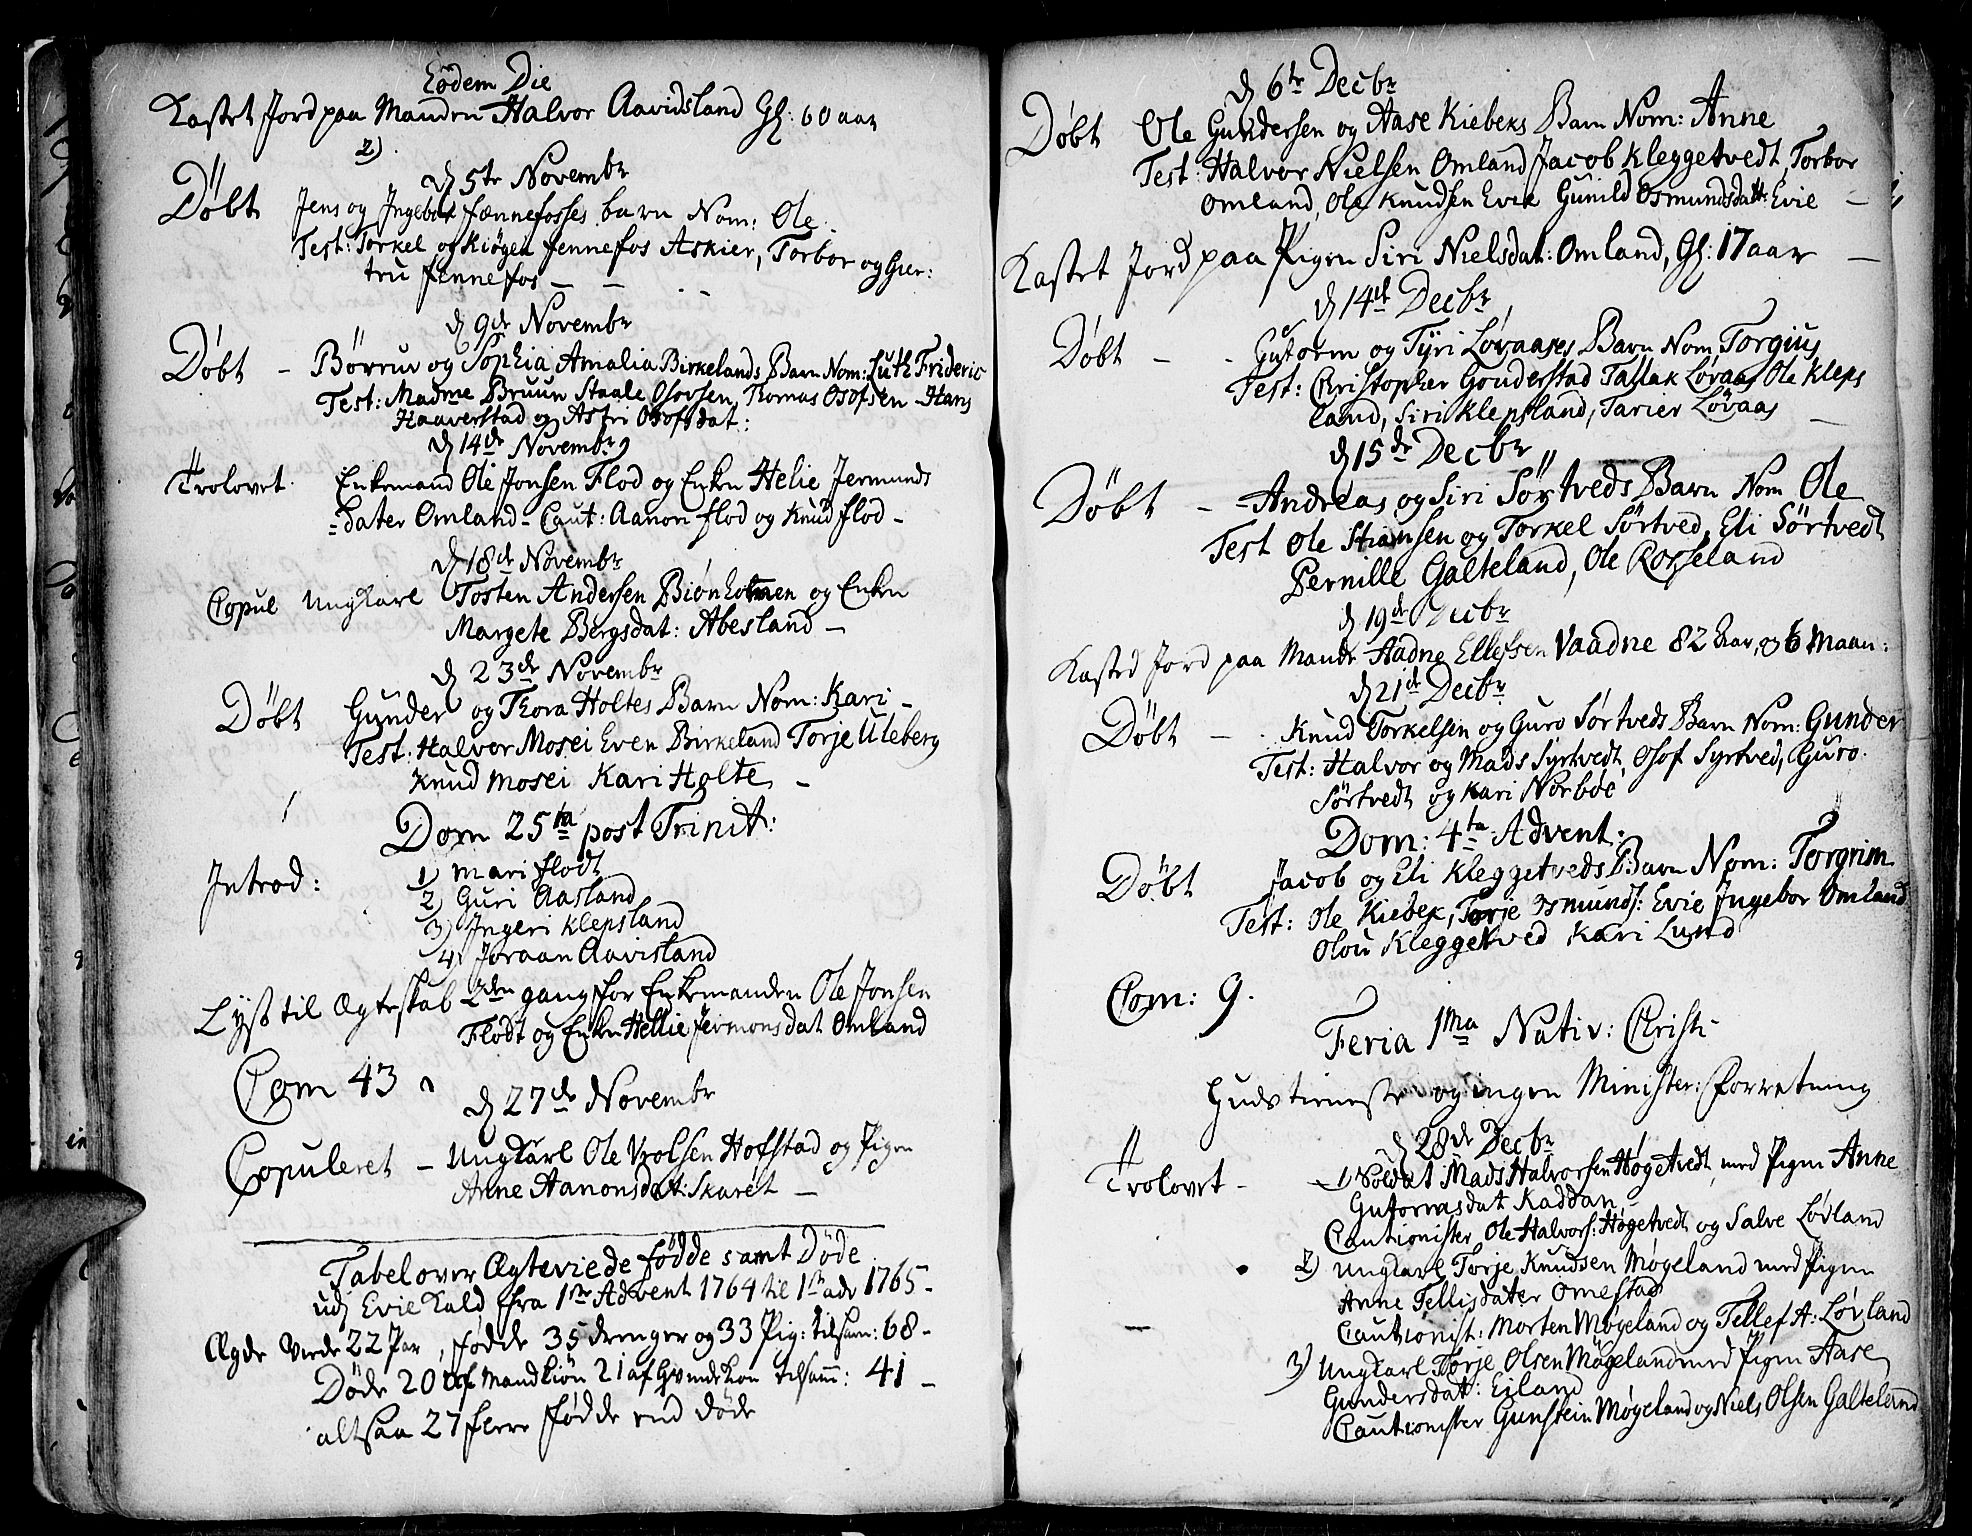 Eodem Die
Kastet Jord paa Manden Halvor Aavidsland Gl: 60 aar
2)
d 5te Novembr
Døbt Jens og Ingebor fennefosses barn Nom: Ole
Test: Torkel og Kiøgei fennefos Askier, Torbor og Gier:
tru fennefos —
d 9de Novembr
Døbt – Børruv og Sophia Amalia Birkelands Barn Nom: Luth Frideric
Test: Madme Bruun Staale Osovsen, Thomas Osofsen Hans
Haaverstad og Astri Osofsdat:
d 14de Novembr
Trolovet Enkemand Ole Jonsen Flod og Enken Helie Jermunds
=dater Omland – Caut: Aanon flod og Knud flod –
d 18de Novembr
Copul Ungkarl Tosten Andersen Biønholmen og Enken
Margete Bergsdat: Abesland –
d 23de Novembr
Døbt Gunder og Thora Holtes Barn Nom: Kari –
Test: Halvor Mosei Even Birkeland Torje Uleberg
Knud Mosei Kari Holte –
Dom 25ta post Trinit:
Introd: 1) Mari flodt
2) Guri Aasland
3) Ingeri Klepsland
4) Joraan Aavisland
Lyst til Ægteskab 2den gang for Enkemanden Ole Jonsen
Flodt og Enken Hellie Jermonsdat Omland
Com 43
d 27de Novembr
Copuleret – Ungkarl Ole Olsen Hofstad og Pigen
Anne Aanonsdat: Skaret –
Tabel over Ægteviede fødde samt Døde
udj Evie Kald fra 1ste Advent 1764 til 1ste adv 1765 –
Ægde Viede 22 Par, fødde 35 drenger og 33 Pig: tilsam: 68 –
Døde 20 af Mandkiøn 21 af Qvindekiøn tilsam: 41 –
altsaa 27 flere fødde end døde
d 6te Decbr
Døbt Ole Gundersen og Aase Kiebeks Barn Nom: Anne
Test: Halvor Nielsen Omland Jacob Kleggetvedt, Torbor
Omland, Ole Knudsen Evie Gunild Osmundsdatt: Evie –
Kastet Jord paa Pigen Siri Nielsdat: Omland, Gl: 17 aar –
d 14de Decbr
Døbt – Gutorm og Tyri Løvaases Barn Nom Torgius
Test: Christopher Gouderstad Tallak Løvaas Ole Kleps
land, Siri Klepsland, Tarier Løvaas –
d 15de Decbr
Døbt – Andreas og Siri Sörtveds Barn Nom Ole
Test Ole Stiansen og Torkel Sörtved, Eli Sörtvedt
Pernille Galteland, Ole Rosseland
d 19de Decbr
Kasted Jord paa Mande Aadne Ellefsen Vaadne 82 aar, og 6 Maan:
d 21de Decbr
Døbt – Knud Torkelsen og Guro Sørtveds Barn Nom: Gunder
Test: Halvor og Mads Syrtvedt Osof Syrtved, Guro
Sörtvedt og Kari Norböe
Dom: 4ta Advent:
Døbt Jacob og Eli Kleggetveds Barn Nom: Torgrim
Test: Ole Kiebek, Torje Osmunds: Evie Ingebor Omland
Olou Kleggetved Kari Lund
Com: 9.
Feria 1ma Nativ: Christi
Gudstieneste og ingen Minister: forretning
d 28de Decbr
Trolovet – 1) Soldat Mads Halvorsen Høgetvedt, med Pigen Anne
Gutormsdat Kaddan
Cautionister Ole Halvors: Høgetvedt og Salve Løvland
2) Ungkarl Torje Knudsen Møgeland med Pigen
Anne Tellisdater Omestad
Cautionist: Morten Møgeland og Tellef A: Løvland
3) Ungkarl Torje Olsen Møgeland med Pigen Aase
Gundersdat: Eiland
Cautionister Gunstein Møgeland og Niels Olsen Galteland